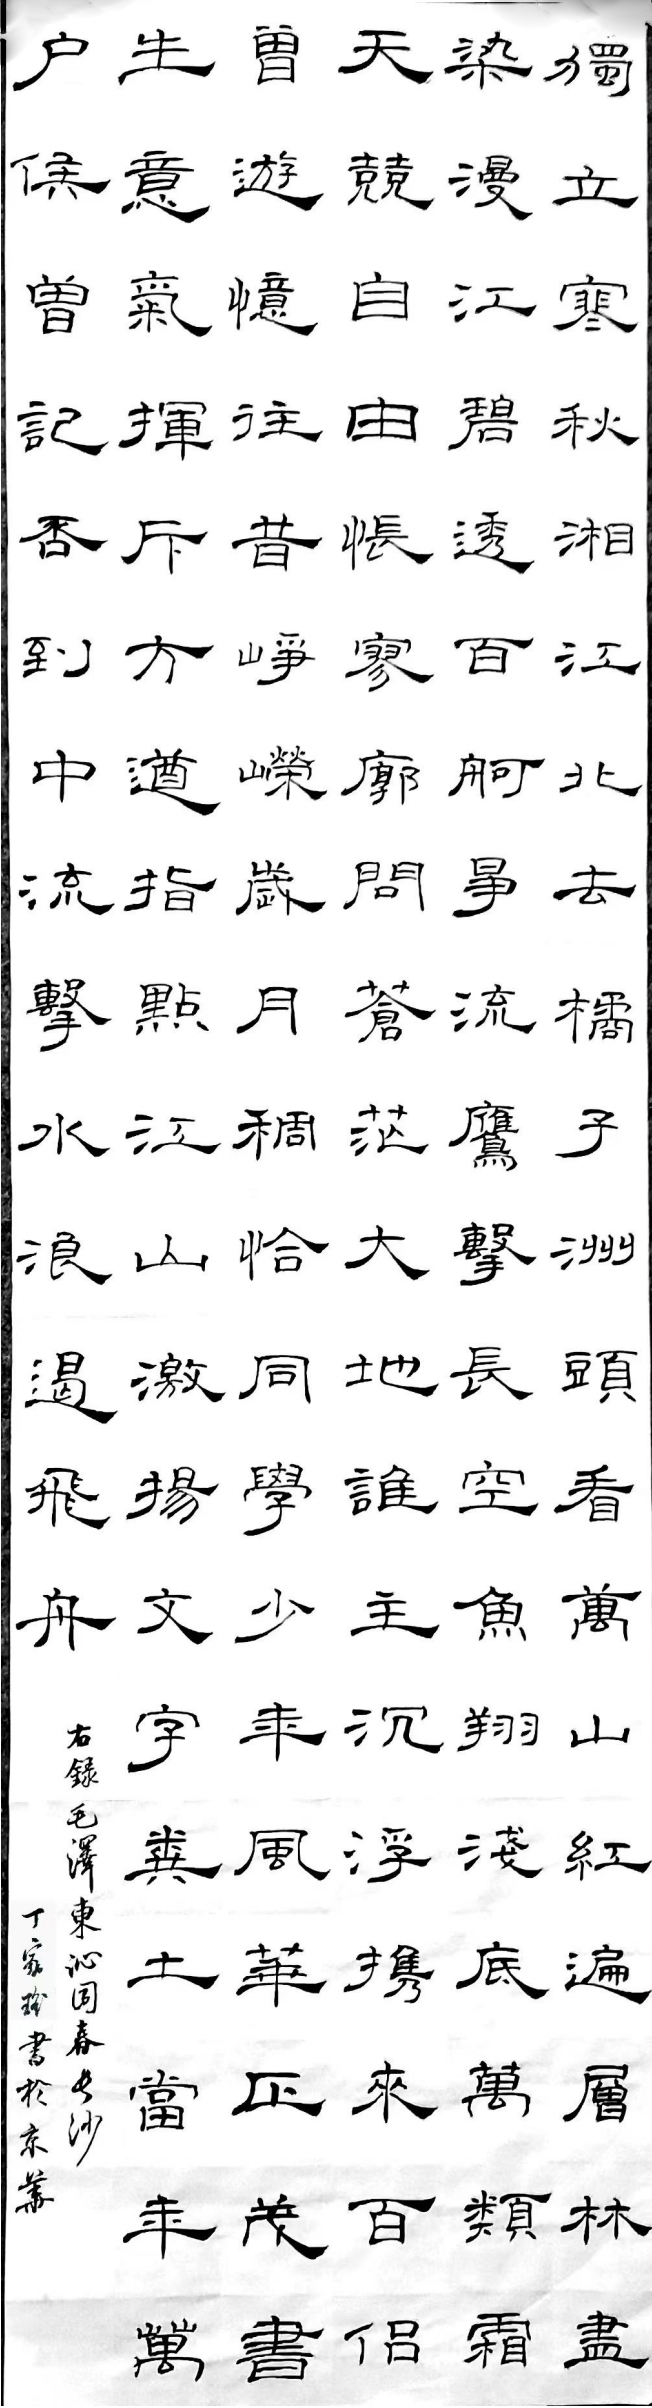 獨立寒秋湘江北去橘子洲頭看萬山紅遍層林盡
染漫江碧透百舸爭流鷹擊長空魚翔淺底萬類霜
天競自由悵寥廓問蒼茫大地誰主沉浮携來百侣
曾遊憶往昔崢嶸歲月稠恰同學少年風華正茂書
生意氣揮斥方遒指點江山激揚文字糞土當年萬
户侯曾記否到中流擊水浪遏飛舟
右録毛澤東沁园春長沙
丁家書於京華